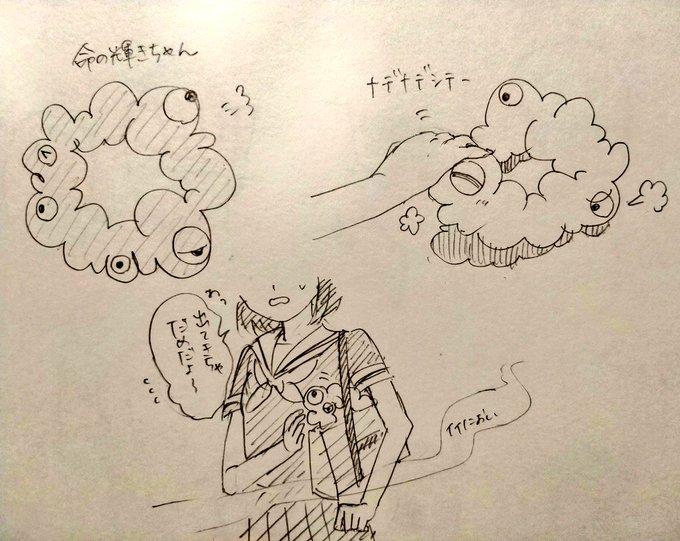 命の輝きちゃん
ナデナデシテー
わっ
出てきちゃ
だめだよ〜
イイにおい